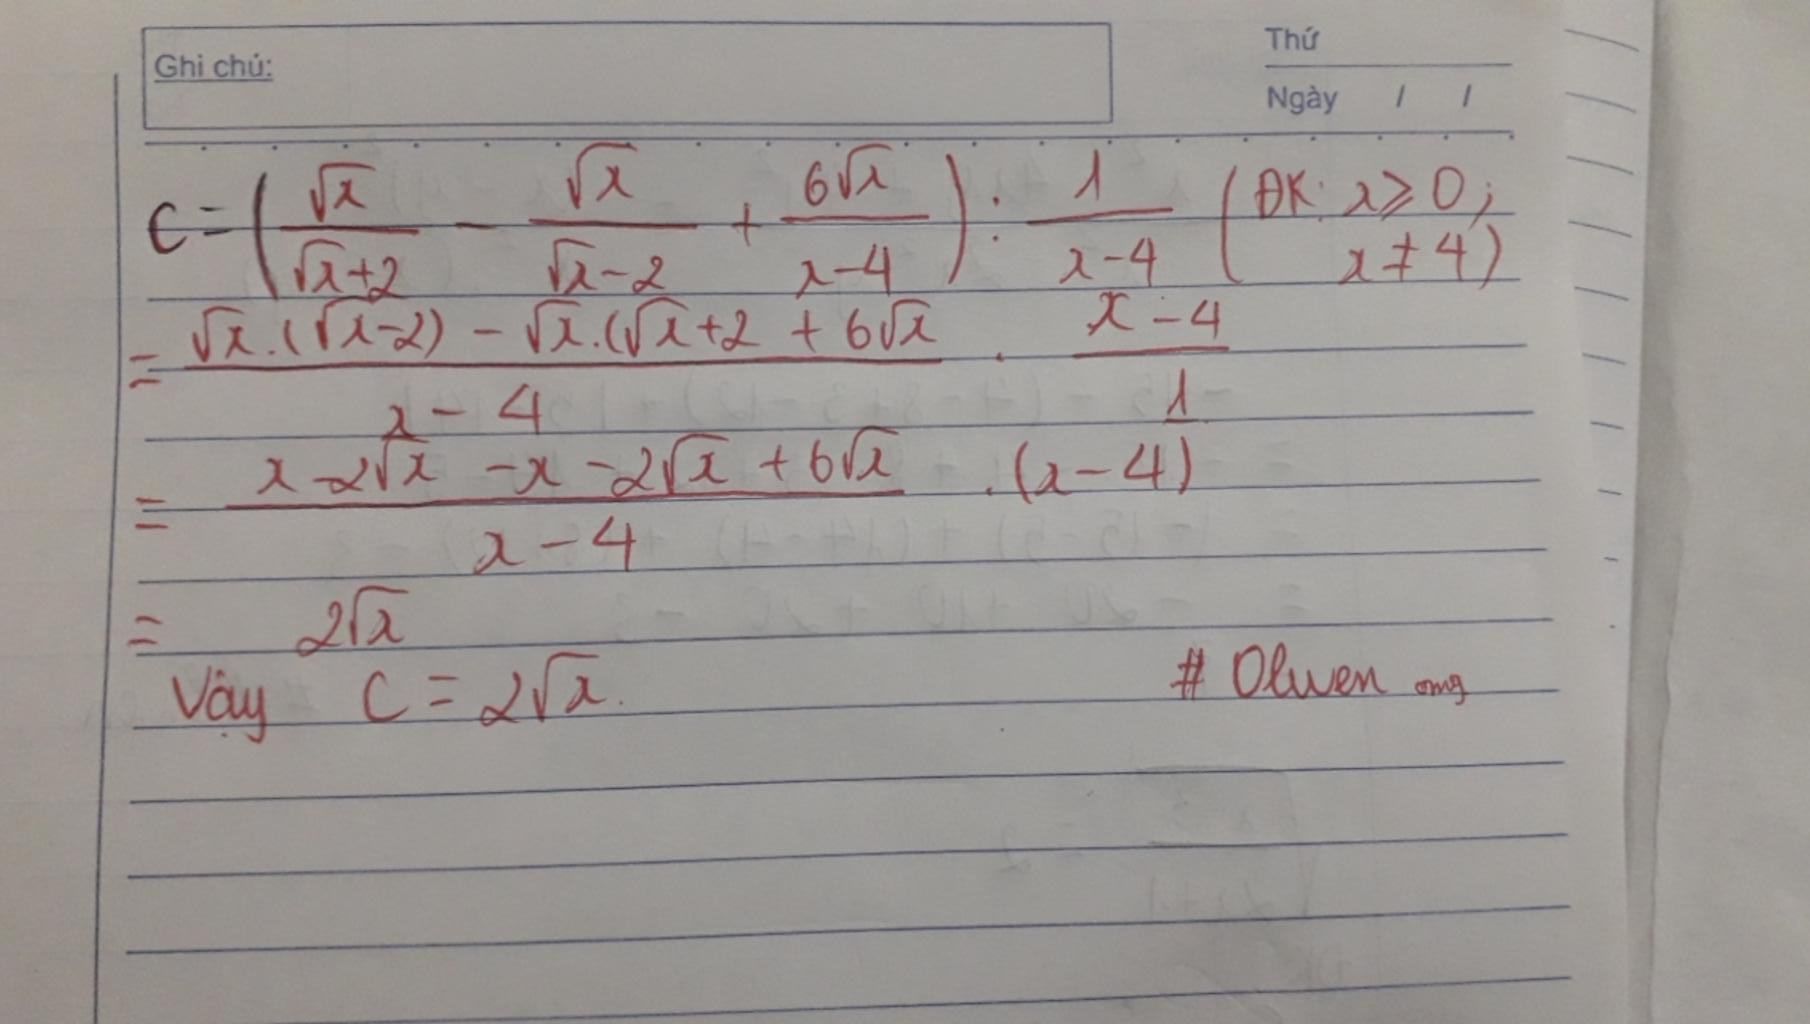 Ghi chú:
Thứ
Ngày / /
C = (√x/(√x+2) - √x/(√x-2) + 6√x/(x-4)) : 1/(x-4) (ĐK: x ≥ 0; x ≠ 4)
= (√x.(√x-2) - √x.(√x+2 + 6√x)/(x-4) . (x-4)/1
= (x-2√x -x -2√x +6√x)/(x-4) .(x-4)
= 2√x
Vậy C = 2√x.
# Olwen